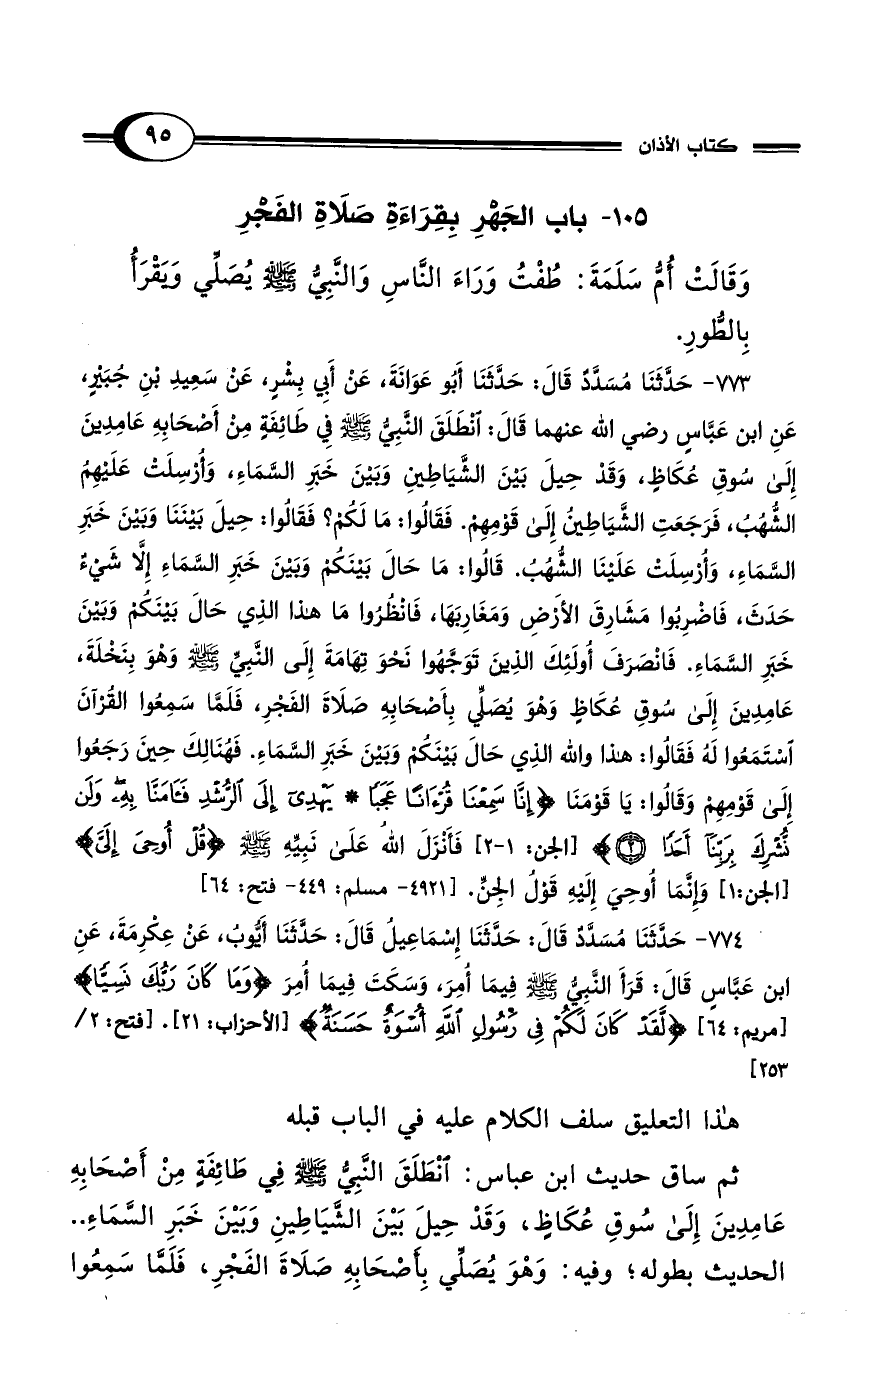 كتاب الأذان ٩٥
١٠٥- باب الجَهْرِ بِقِرَاءَةِ صَلَاةِ الفَجْرِ
وَقَالَتْ أُمُّ سَلَمَةَ: طُفْتُ وَرَاءَ النَّاسِ وَالنَّبِيُّ ﷺ يُصَلِّي وَيَقْرَأُ
بِالطُّورِ.
٧٧٣- حَدَّثَنَا مُسَدَّدٌ قَالَ: حَدَّثَنَا أَبُو عَوَانَةَ، عَنْ أَبِي بِشْرٍ، عَنْ سَعِيدِ بْنِ جُبَيْرٍ،
عَنِ ابن عَبَّاسٍ رضي الله عنهما قَالَ: ٱنْطَلَقَ النَّبِيُّ ﷺ فِي طَائِفَةٍ مِنْ أَصْحَابِهِ عَامِدِينَ
إِلَىٰ سُوقِ عُكَاظٍ، وَقَدْ حِيلَ بَيْنَ الشَّيَاطِينِ وَبَيْنَ خَبَرِ السَّمَاءِ، وَأُرْسِلَتْ عَلَيْهِمُ
الشُّهُبُ، فَرَجَعَتِ الشَّيَاطِينُ إِلَىٰ قَوْمِهِمْ. فَقَالُوا: مَا لَكُمْ؟ فَقَالُوا: حِيلَ بَيْنَنَا وَبَيْنَ خَبَرِ
السَّمَاءِ، وَأُرْسِلَتْ عَلَيْنَا الشُّهُبُ. قَالُوا: مَا حَالَ بَيْنَكُمْ وَبَيْنَ خَبَرِ السَّمَاءِ إِلَّا شَيْءٌ
حَدَثَ، فَاضْرِبُوا مَشَارِقَ الأَرْضِ وَمَغَارِبَهَا، فَانْظُرُوا مَا هٰذا الذِي حَالَ بَيْنَكُمْ وَبَيْنَ
خَبَرِ السَّمَاءِ. فَانْصَرَفَ أُولَئِكَ الذِينَ تَوَجَّهُوا نَحْوَ تِهَامَةَ إِلَى النَّبِيِّ ﷺ وَهْوَ بِنَخْلَةَ،
عَامِدِينَ إِلَىٰ سُوقِ عُكَاظٍ وَهْوَ يُصَلِّي بِأَصْحَابِهِ صَلَاةَ الفَجْرِ، فَلَمَّا سَمِعُوا القُرْآنَ
ٱسْتَمَعُوا لَهُ فَقَالُوا: هٰذا والله الذِي حَالَ بَيْنَكُمْ وَبَيْنَ خَبَرِ السَّمَاءِ. فَهُنَالِكَ حِينَ رَجَعُوا
إِلَىٰ قَوْمِهِمْ وَقَالُوا: يَا قَوْمَنَا ﴿إِنَّا سَمِعْنَا قُرْءَانًا عَجَبًا * يَهْدِىٓ إِلَى ٱلرُّشْدِ فَـَٔامَنَّا بِهِۦ وَلَن
نُّشْرِكَ بِرَبِّنَآ أَحَدًا ٢﴾ [الجن: ١-٢] فَأَنْزَلَ اللهُ عَلَىٰ نَبِيِّهِ ﷺ ﴿قُلْ أُوحِىَ إِلَىَّ﴾
[الجن:١] وَإِنَّمَا أُوحِيَ إِلَيْهِ قَوْلُ الجِنِّ. [٤٩٢١- مسلم: ٤٤٩- فتح: ٦٤]
٧٧٤- حَدَّثَنَا مُسَدَّدٌ قَالَ: حَدَّثَنَا إِسْمَاعِيلُ قَالَ: حَدَّثَنَا أَيُّوبُ، عَنْ عِكْرِمَةَ، عَنِ
ابن عَبَّاسٍ قَالَ: قَرَأَ النَّبِيُّ ﷺ فِيمَا أُمِرَ، وَسَكَتَ فِيمَا أُمِرَ ﴿وَمَا كَانَ رَبُّكَ نَسِيًّا﴾
[مريم: ٦٤] ﴿لَّقَدْ كَانَ لَكُمْ فِى رَسُولِ ٱللَّهِ أُسْوَةٌ حَسَنَةٌ﴾ [الأحزاب: ٢١]. [فتح: ٢/
٢٥٣]
هٰذا التعليق سلف الكلام عليه في الباب قبله
ثم ساق حديث ابن عباس: ٱنْطَلَقَ النَّبِيُّ ﷺ فِي طَائِفَةٍ مِنْ أَصْحَابِهِ
عَامِدِينَ إِلَىٰ سُوقِ عُكَاظٍ، وَقَدْ حِيلَ بَيْنَ الشَّيَاطِينِ وَبَيْنَ خَبَرِ السَّمَاءِ..
الحديث بطوله؛ وفيه: وَهْوَ يُصَلِّي بِأَصْحَابِهِ صَلَاةَ الفَجْرِ، فَلَمَّا سَمِعُوا